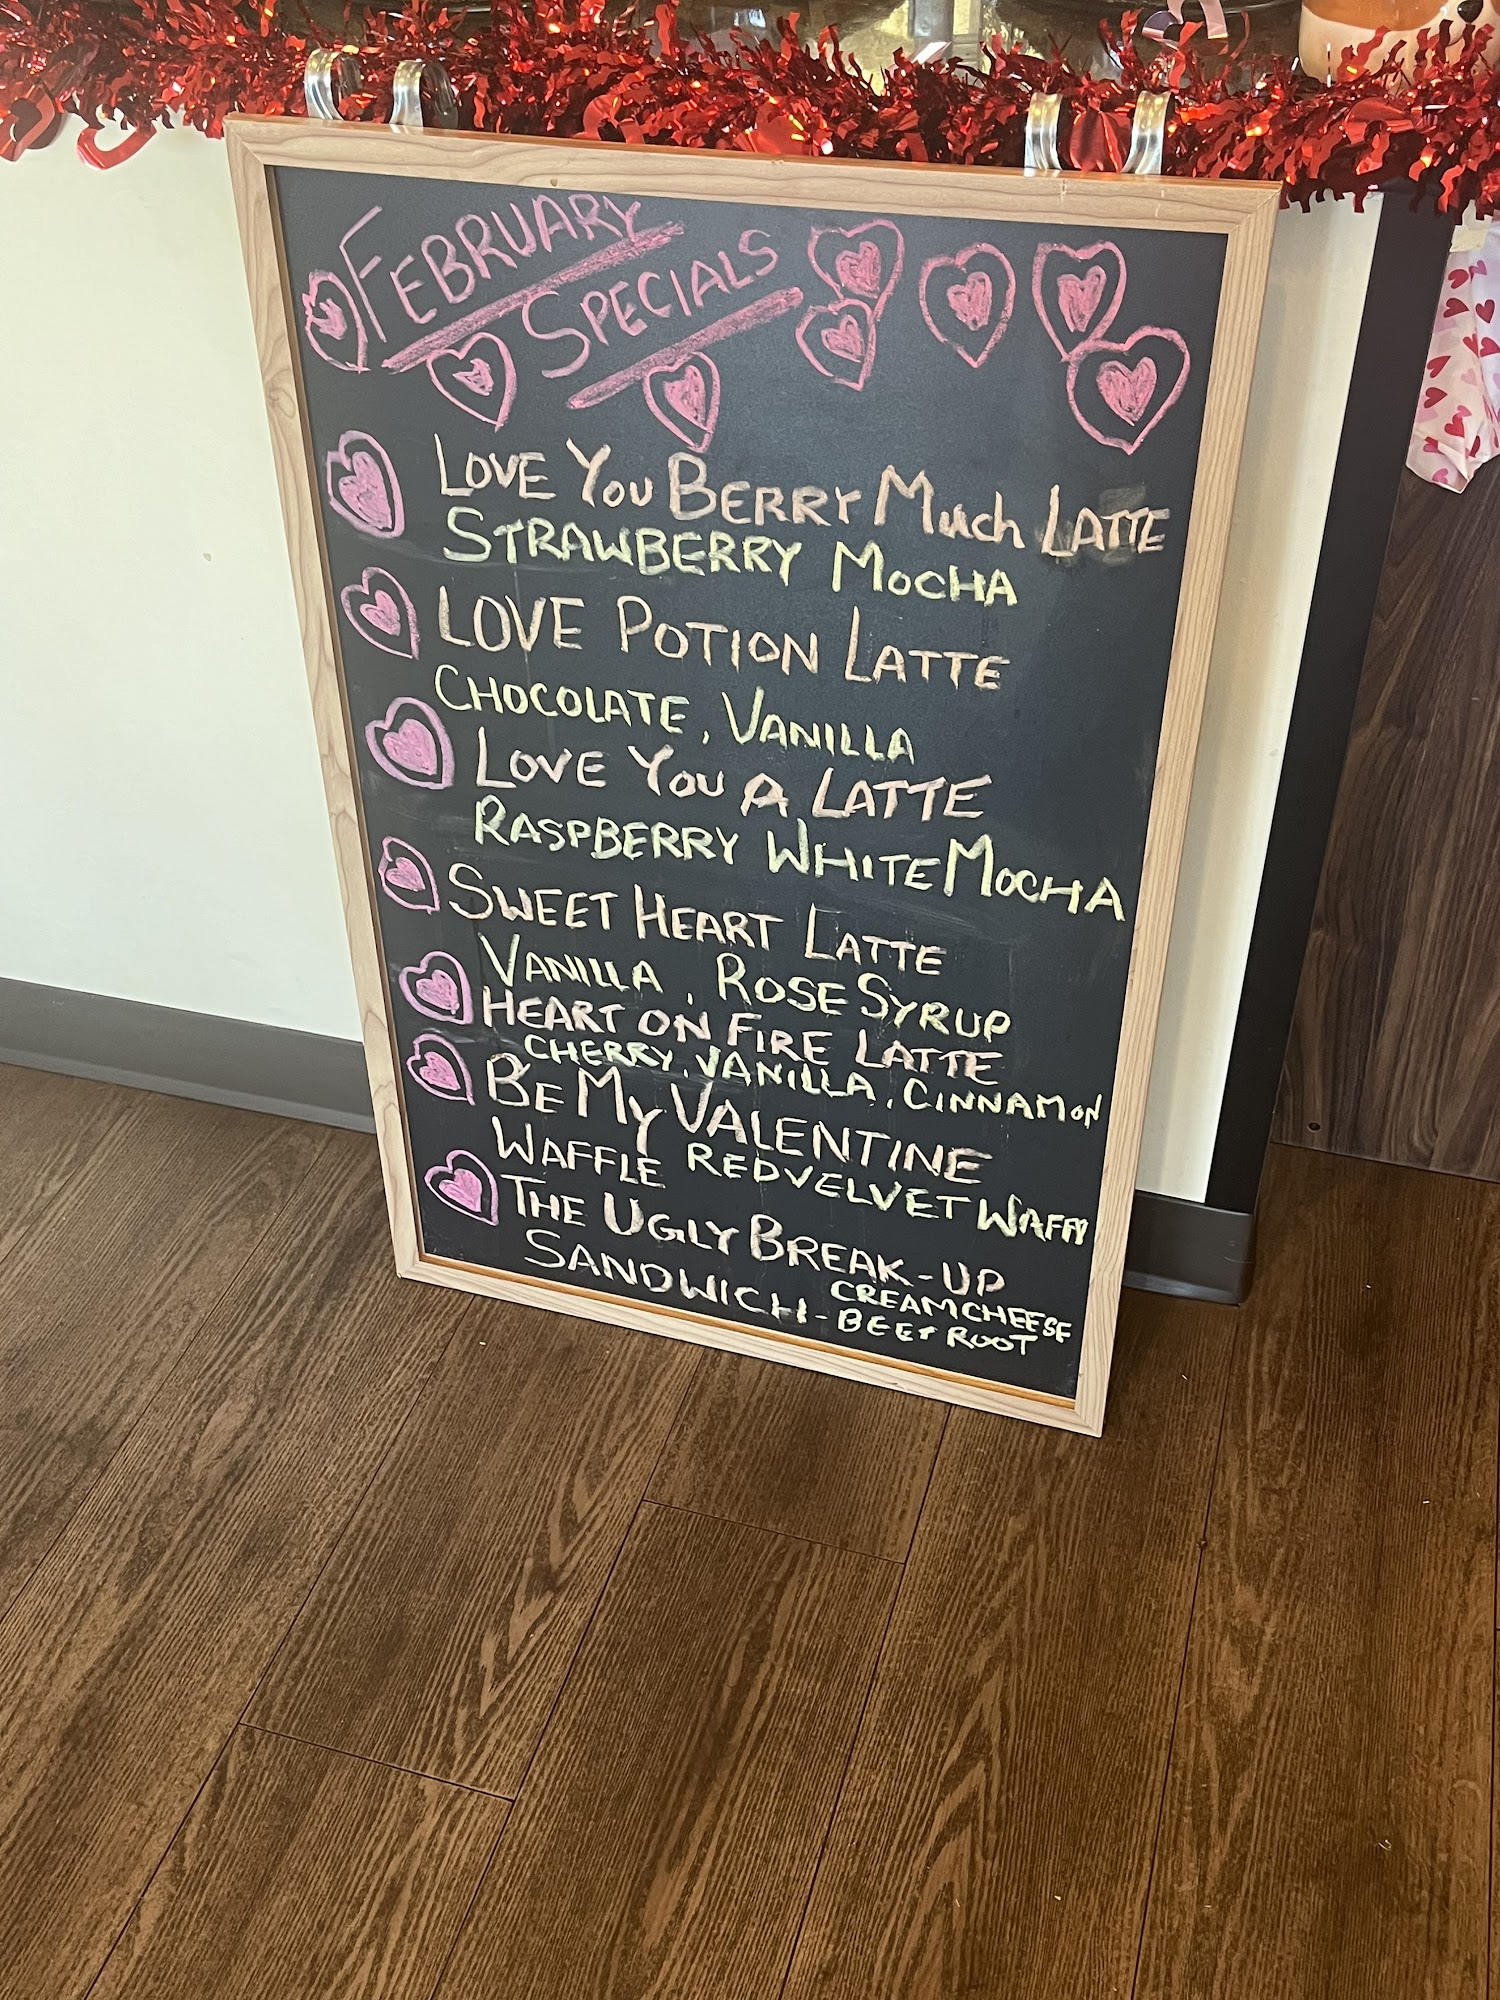 FEBRUARY
SPECIALS
LOVE YOU BERRY Much LATTE
STRAWBERRY MOCHA
LOVE POTION LATTE
CHOCOLATE, VANILLA
LOVE YOU A LATTE
RASPBERRY WHITE MOCHA
SWEET HEART LATTE
VANILLA, ROSE SYRUP
HEART ON FIRE LATTE
CHERRY, VANILLA, CINNAMON
BE MY VALENTINE
WAFFLE RED VELVET
THE UGLY BREAK-UP
SANDWICH - CREAM CHEESE
BEET ROOT